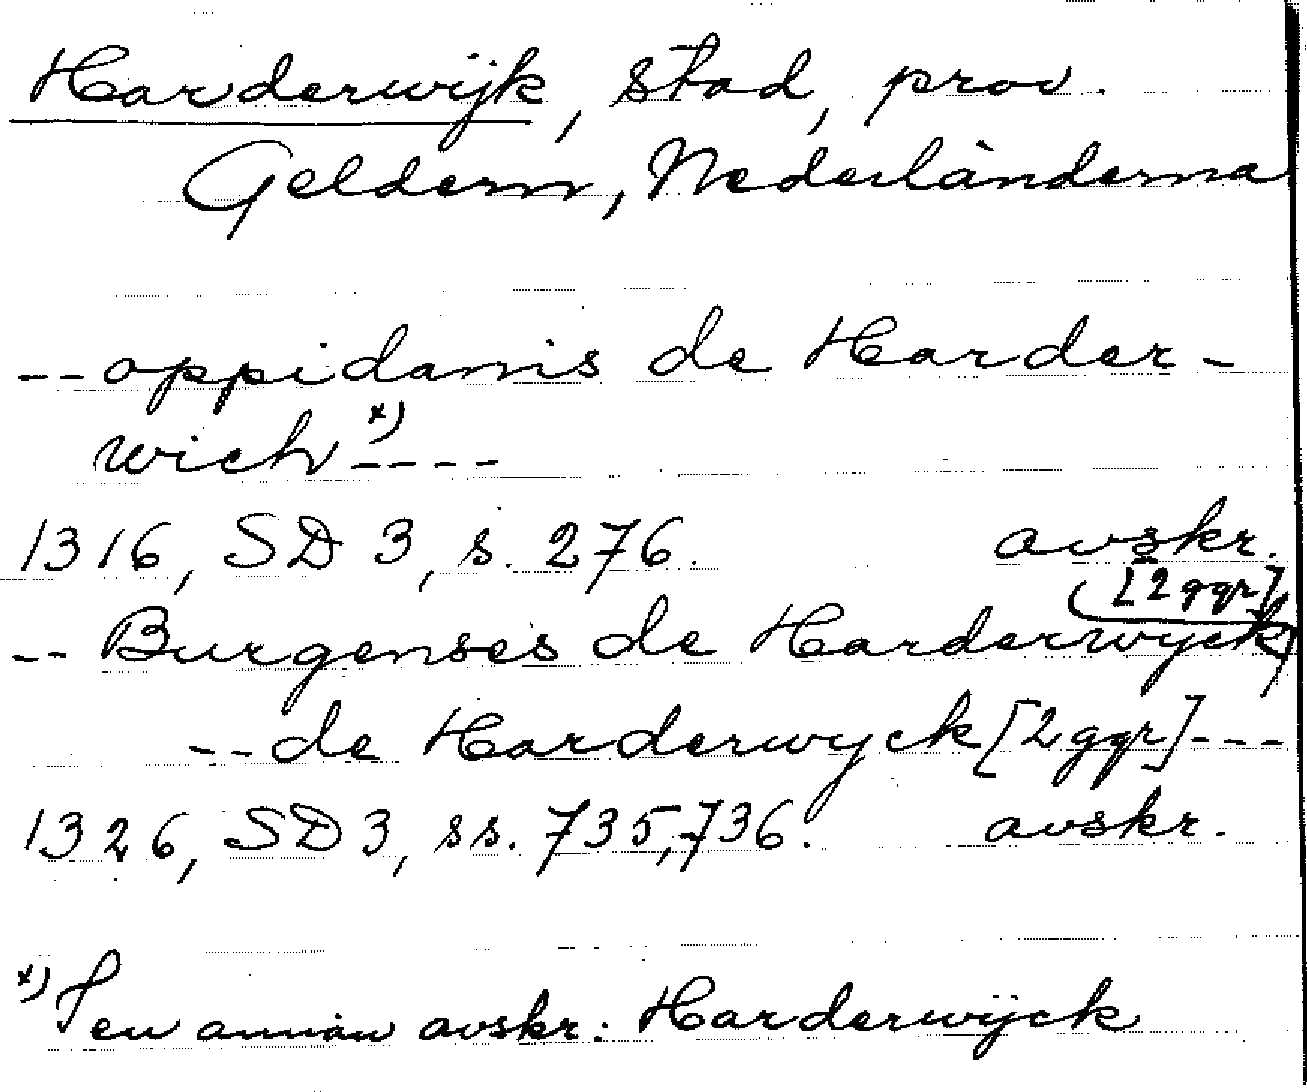 Harderwijk, stad, prov.
Geldern, Nederländerna
-- oppidanis de Harder-
wich *) ----
1316, SD 3, s. 276. avskr.
[2 ggr]
-- Burgenses de Harderwyck,
-- de Harderwyck [2 ggr] ---
1326, SD 3, ss. 735, 736. avskr.
*) I en annan avskr.: Harderwijck